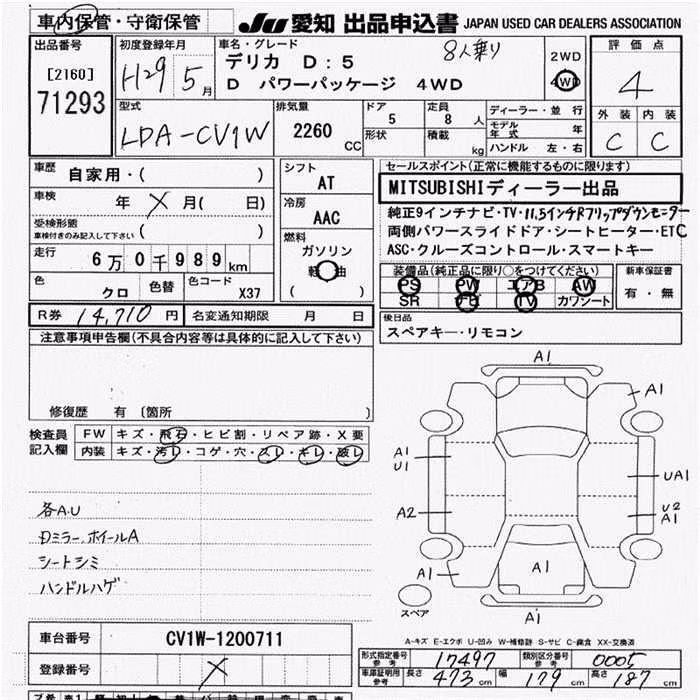 車内保管・守衛保管
JU 愛知 出品申込書 JAPAN USED CAR DEALERS ASSOCIATION
出品番号
[2160]
71293
初度登録年月
H29 5月
車名・グレード
デリカ D:5
8人乗り
D パワーパッケージ 4WD
2WD
4WD
評価点
4
外装 内装
C C
型式
LDA-CV1W
排気量
2260 CC
ドア
5
形状
定員
8人
積載
kg
ディーラー・並行
モデル年式 年
ハンドル 左・右
車歴
自家用・( )
車検
年 X 月( 日)
受検形態
車検付きのみ記入して下さい ( )
走行
6万0千989km
色
クロ
色替
色コード
X37
シフト
AT
冷房
AAC
燃料
ガソリン
軽油
( )
セールスポイント(正常に機能するものに限ります)
MITSUBISHIディーラー出品
純正9インチナビ・TV・11.5インチRフリップダウンモニター
両側パワースライドドア・シートヒーター・ETC
ASC・クルーズコントロール・スマートキー
装備品(純正品に限り○をつけてください)
PS PW エアB AW
SR ナビ TV カワシート
新車保証書
有・無
R券 14,710 円
名変通知期限 月 日
後日品
スペアキー・リモコン
注意事項申告欄(不具合内容等は具体的に記入して下さい)
修復歴 有 〔箇所 〕
検査員記入欄
FW キズ・飛石・ヒビ割・リペア跡・X要
内装 キズ・汚レ・コゲ・穴・スレ・キレ・破レ
各A.U
Dミラー,ホイールA
シートシミ
ハンドルハゲ
A1
A1
A1
U1
UA1
A2
U2
A1
A1
A1
A1
A1
スペア
A-キズ E-エクボ U-凹み W-補修跡 S-サビ C-腐食 XX-交換済
車台番号
CV1W-1200711
登録番号
X
形式指定番号 参考
17497
類別区分番号 参考
0005
車庫証明用 参考
長さ 473 cm 幅 179 cm 高さ 187 cm